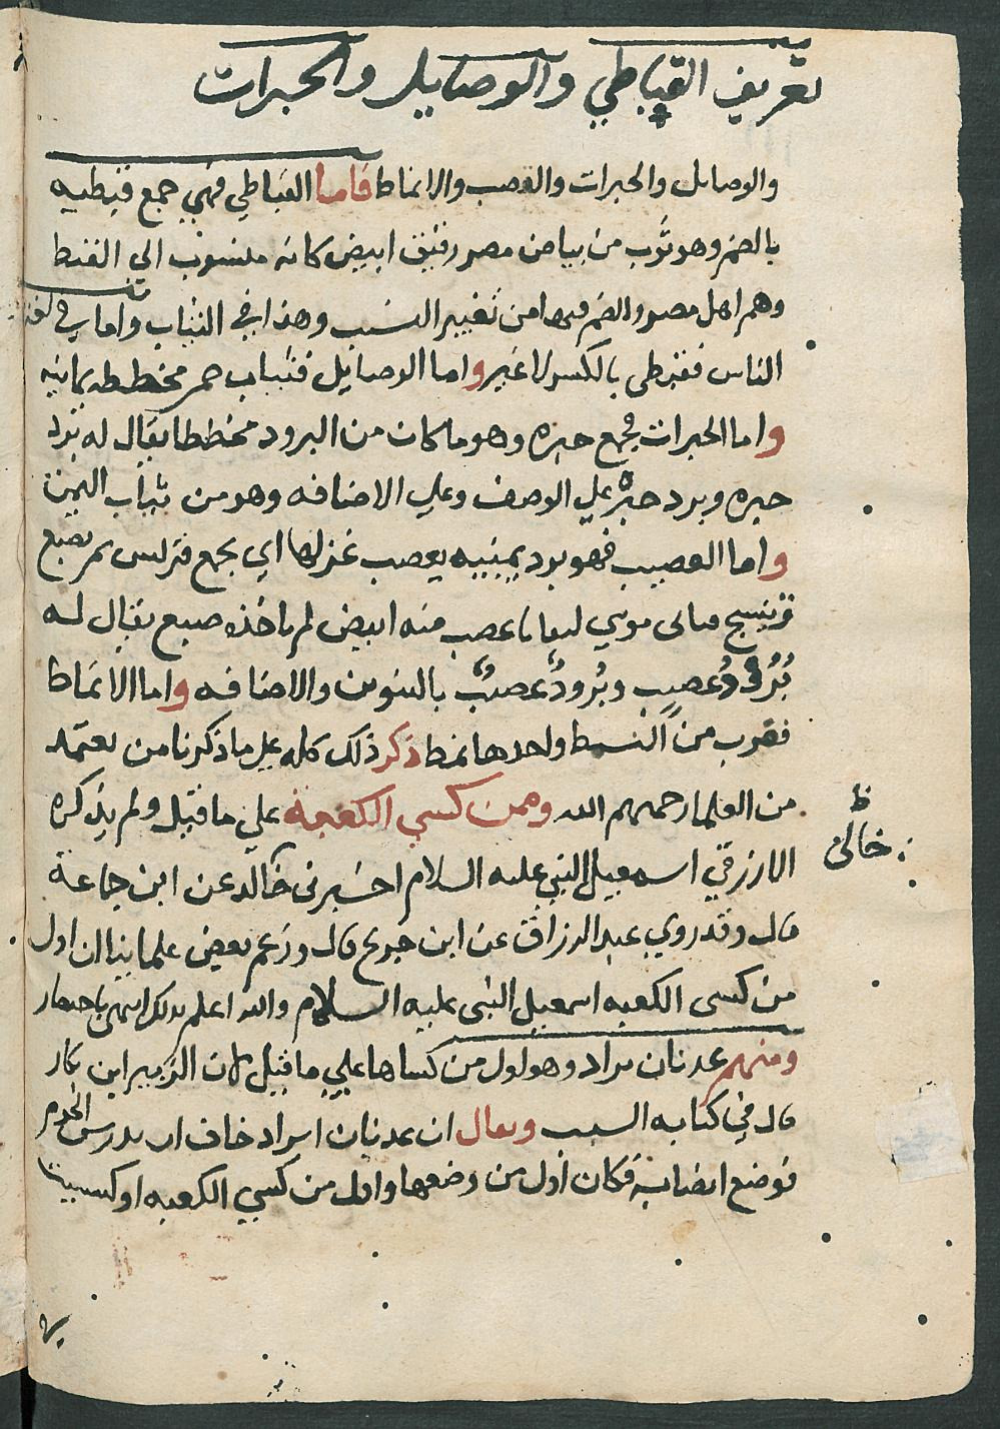 تعريف القباطي والوصايل والحبرات
والوصايل والحبرات والعصب والانماط فاما القباطي فهي جمع قبطيه
بالضم وهو ثوب من بياض مصر رقيق ابيض كانه منسوب الي القبط
وهم اهل مصر والضم فيها من تغيير النسب وهذا في الثياب واما في
الناس فقبطي بالكسر لا غير واما الوصايل فثياب حمر مخططه يمانيه
واما الحبرات فجمع حبره وهو ما كان من البرود مخططا يقال له برد
حبره وبرد حبرة علي الوصف وعلي الاضافه وهو من ثياب اليمن
واما العصب فهو برد يمنيه يعصب غزلها اي يجمع ثم يصبغ
ثم ينسج ما عصب منه ابيض لم ياخذه صبغ يقال له
بُرُودُ عصبٍ وبُرودٌ عصبٌ بالتنوين والاضافه واما الانماط
فضرب من البسط واحدها نمط ذكر ذلك كله علي ما ذكرنا من يعتمد
من العلما رحمهم الله وممن كسي الكعبة علي ما قيل ولم يذكره
الازرقي اسمعيل النبي عليه السلام اخبرني خالد عن ابن جماعة
ظ
خالي
قال وقد روي عبد الرزاق عن ابن جريج قال وزعم بعض علماينا ان اول
من كسى الكعبه اسمعيل النبى عليه السلام والله اعلم بذلك انتهى باختصار
ومنهم عدنان بن اد وهو اول من كساها علي ما قيل لان الزبير ابن بكار
قال في كتابه النسب ويقال ان عدنان ابن اد خاف ان يدرس الحرم
فوضع انصابه فكان اول من وضعها واول من كسي الكعبه او كسيت